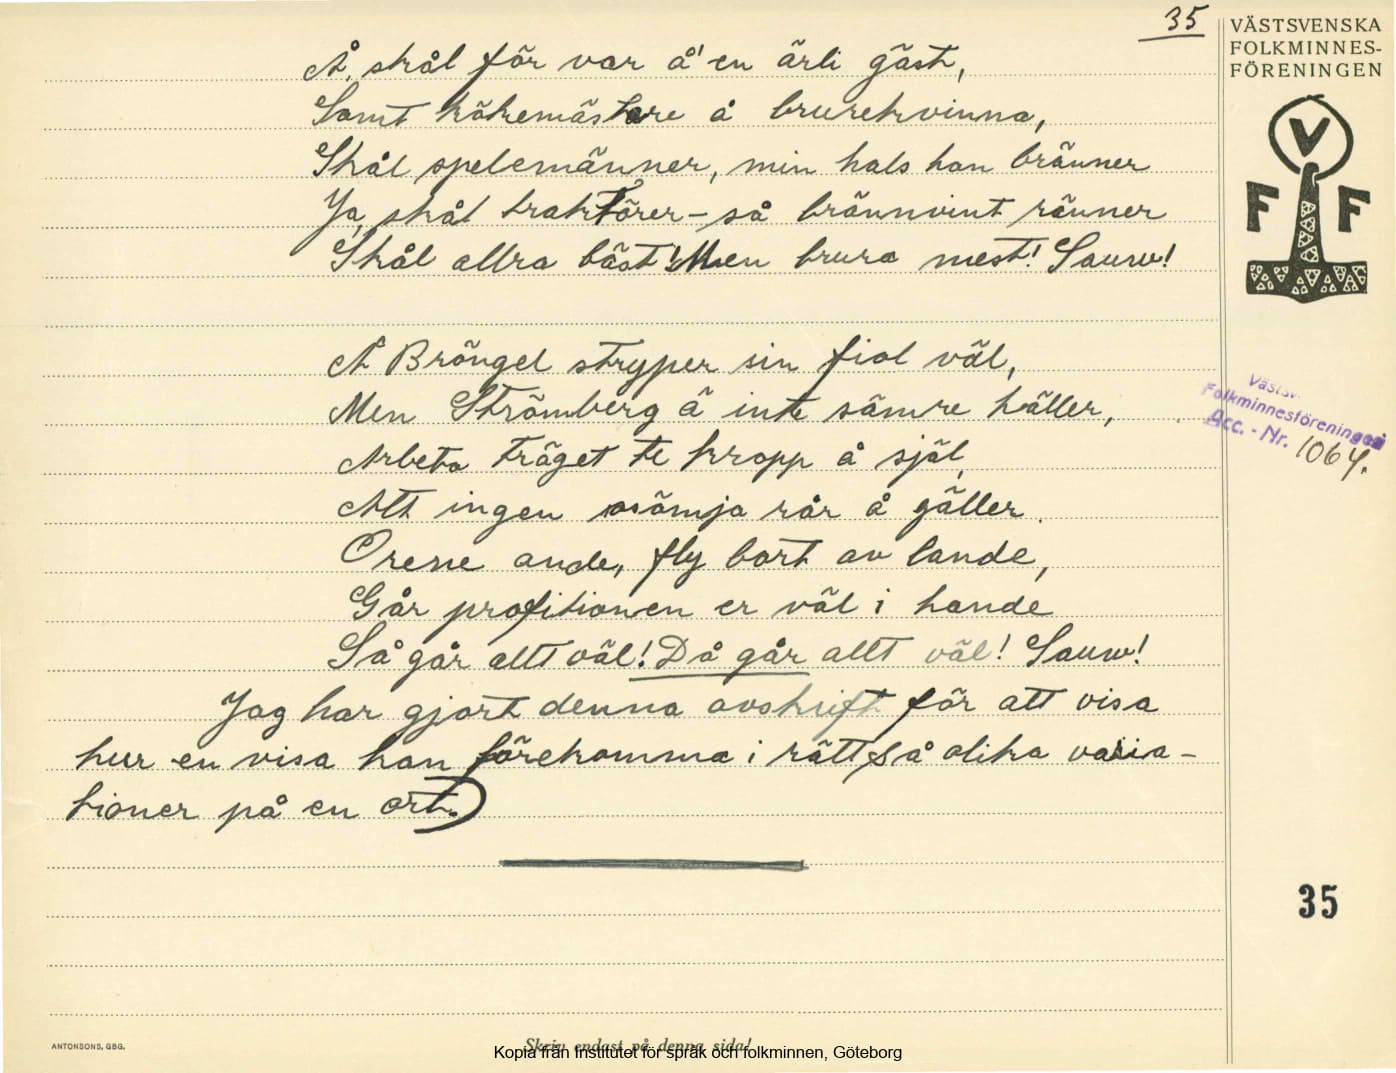 35
VÄSTSVENSKA
FOLKMINNES-
FÖRENINGEN
V
F F
Å, skål för var å' en ärli gäst,
Samt kökemästare å brurekvinna,
Skål spelemänner, min hals han bränner
Ja, skål traktörer – så brännvint ränner
Skål allra bäst! Men brura mest! Sauw!
Å Bröngel stryper sin fiol väl,
Men Strömberg ä inte sämre häller,
Arbeta träget te kropp å själ,
Att ingen osämja rår å gäller.
Orene ande, fly bort av lande,
Går profitionen er väl i hande
Så går allt väl! Då går allt väl! Sauw!
Jag har gjort denna avskrift för att visa
hur en visa kan förekomma i rätt så olika varia-
tioner på en ort.)
Västsv.
Folkminnesföreningen
Acc. - Nr. 1064.
35
ANTONSONS, GBG.
Skriv endast på denna sida!
Kopia från Institutet för språk och folkminnen, Göteborg